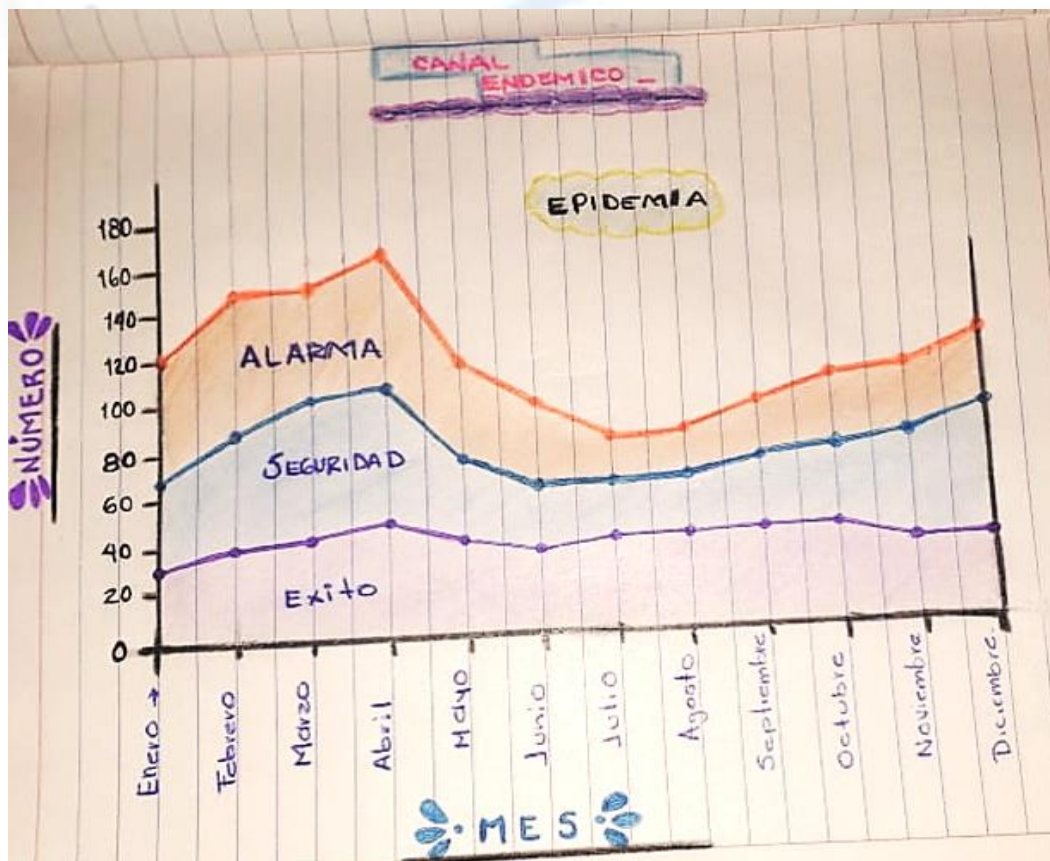 CANAL
ENDEMICO
EPIDEMIA
NÚMERO
180
160
140
120
100
80
60
40
20
0
ALARMA
SEGURIDAD
Exito
Enero →
Febrero
Marzo
Abril
Mayo
Junio
Julio
Agosto
Septiembre
Octubre
Noviembre
Diciembre
MES